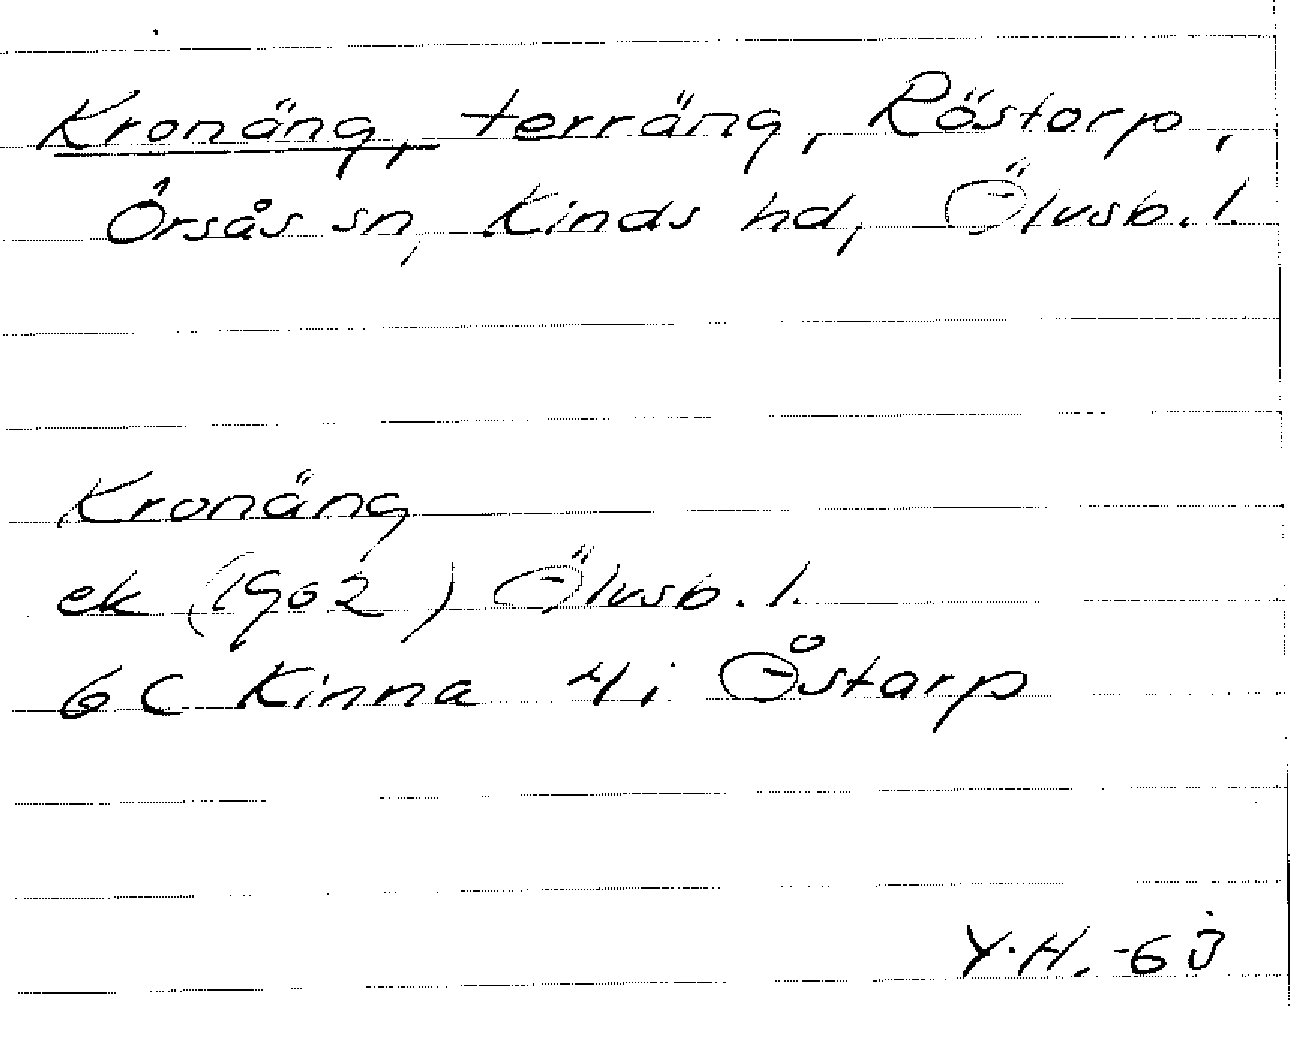 Kronäng, terräng, Röstorp,
Örsås sn, Kinds hd, Älvsb. l.
Kronäng
ek (1962) Älvsb. l.
6 C Kinna 4 i Åstarp
Y. H. -63